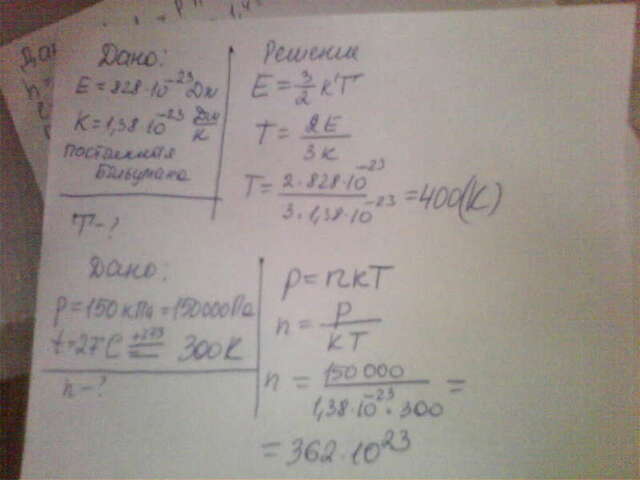 Дано:
E = 828·10⁻²³ Дж
K = 1,38·10⁻²³ Дж/К
постоянная
Больцмана
T - ?
Решение
E = 3/2 кТ
T = 2E/3к
T = 2·828·10⁻²³/3·1,38·10⁻²³ = 400(К)
Дано:
p = 150 кПа = 150000Па
t = 27С +273 = 300К
n - ?
p = nкТ
n = p/кТ
n = 150 000/1,38·10⁻²³·300 =
= 362·10²³